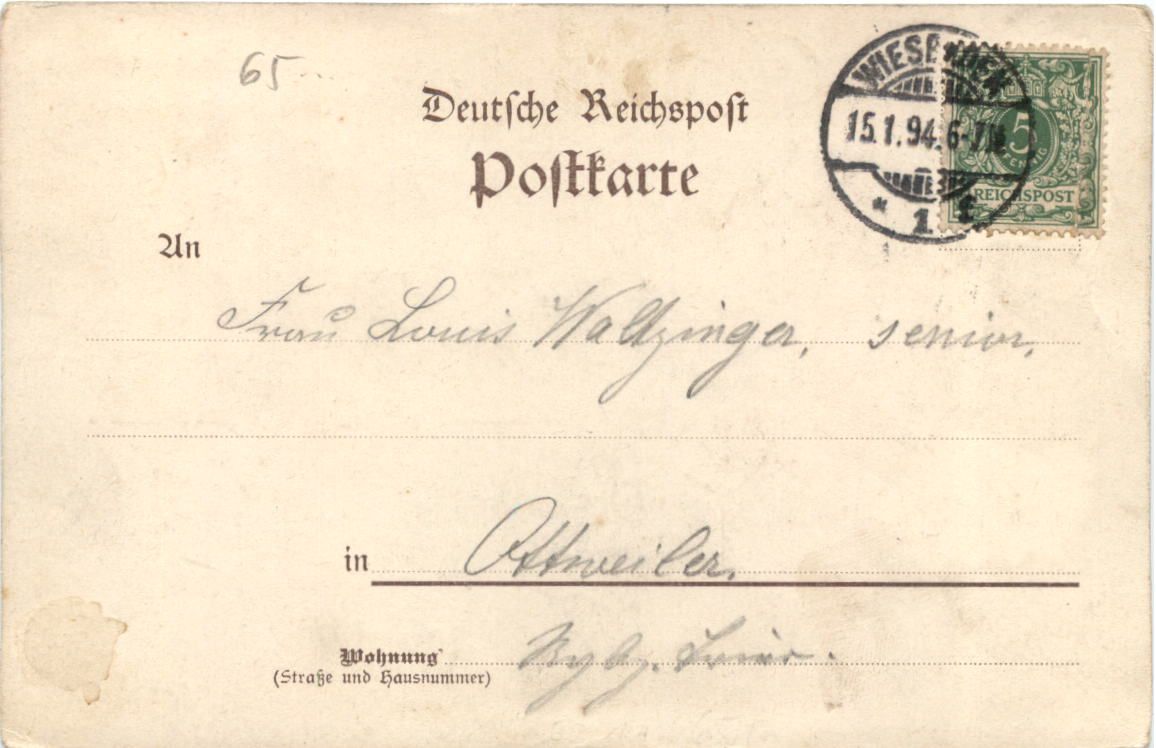 65
Deutsche Reichspost
Postkarte
WIESBADEN
15.1.94.6-7N.
* 1 f
5
PFENNIG
REICHSPOST
An
Frau Louis Waltzinger, senior,
in Ottweiler.
Wohnung Rgbz. Trier.
(Straße und Hausnummer)